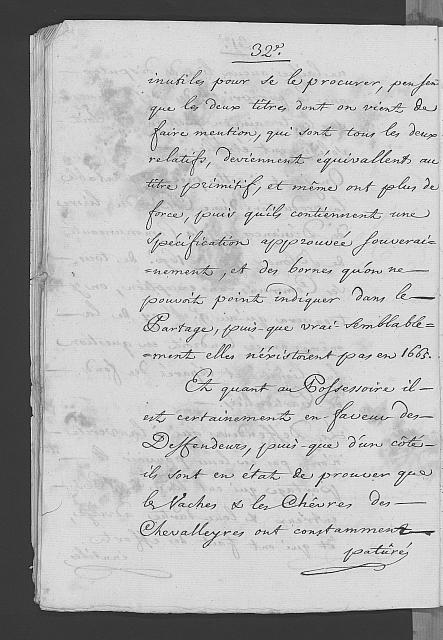 32e.
inutiles pour se le procurer, pensen
que les deux titres dont on vient de
faire mention, qui sont tous les deux
relatifs, deviennent équivallents au
titre primitif, et même ont plus de
force, puis qu'ils contiennent une
spécification approuvée souverai-
=nement, et des bornes qu'on ne
pouvoit point indiquer dans le
Partage, puis-que vrai-semblable-
=ment elles n'éxistoient pas en 1663.
Et quant au Possessoire il
est certainement en faveur des
Deffendeurs, puis-que d'un côté
ils sont en état de prouver que
les Vaches & les Chêvres des
Chevalleyres ont constamment
patûrés